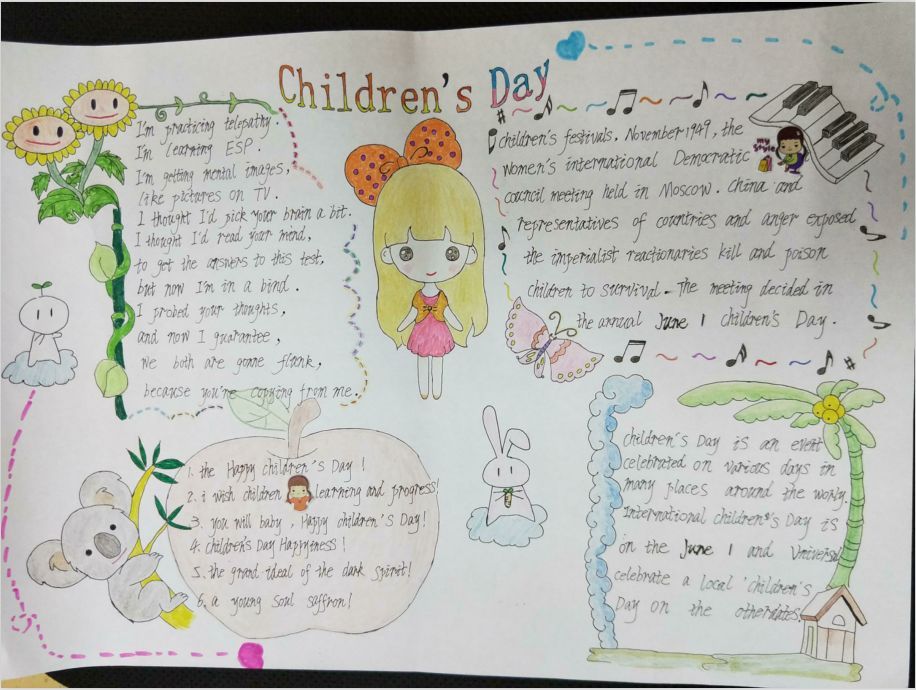 Children's Day
I'm practicing telepathy.
I'm learning ESP.
I'm getting mental images,
like pictures on TV.
I thought I'd pick your brain a bit.
I thought I'd read your mend,
to get the answers to this test,
but now I'm in a bind.
I probed your thoughts,
and now I guarantee,
we both are gonne flank,
because you're copying from me.
children's festivals, November 1949, the
women's international Democratic
council meeting held in Moscow. China and
representatives of countries and anger exposed
the imperialist reactionaries kill and poison
children to survival. The meeting decided in
the annual June 1 children's Day.
my style
1. the Happy children's Day!
2. i wish children learning and progress!
3. you will baby, Happy children's Day!
4. children's Day Happyiness!
5. the grand ideal of the dark spirit!
6. a young soul saffron!
children's Day is an event
celebrated on various days in
many places around the worly.
International children's Day is
on the June 1 and Universal
celebrate a local 'children's
Day on the otherdates.